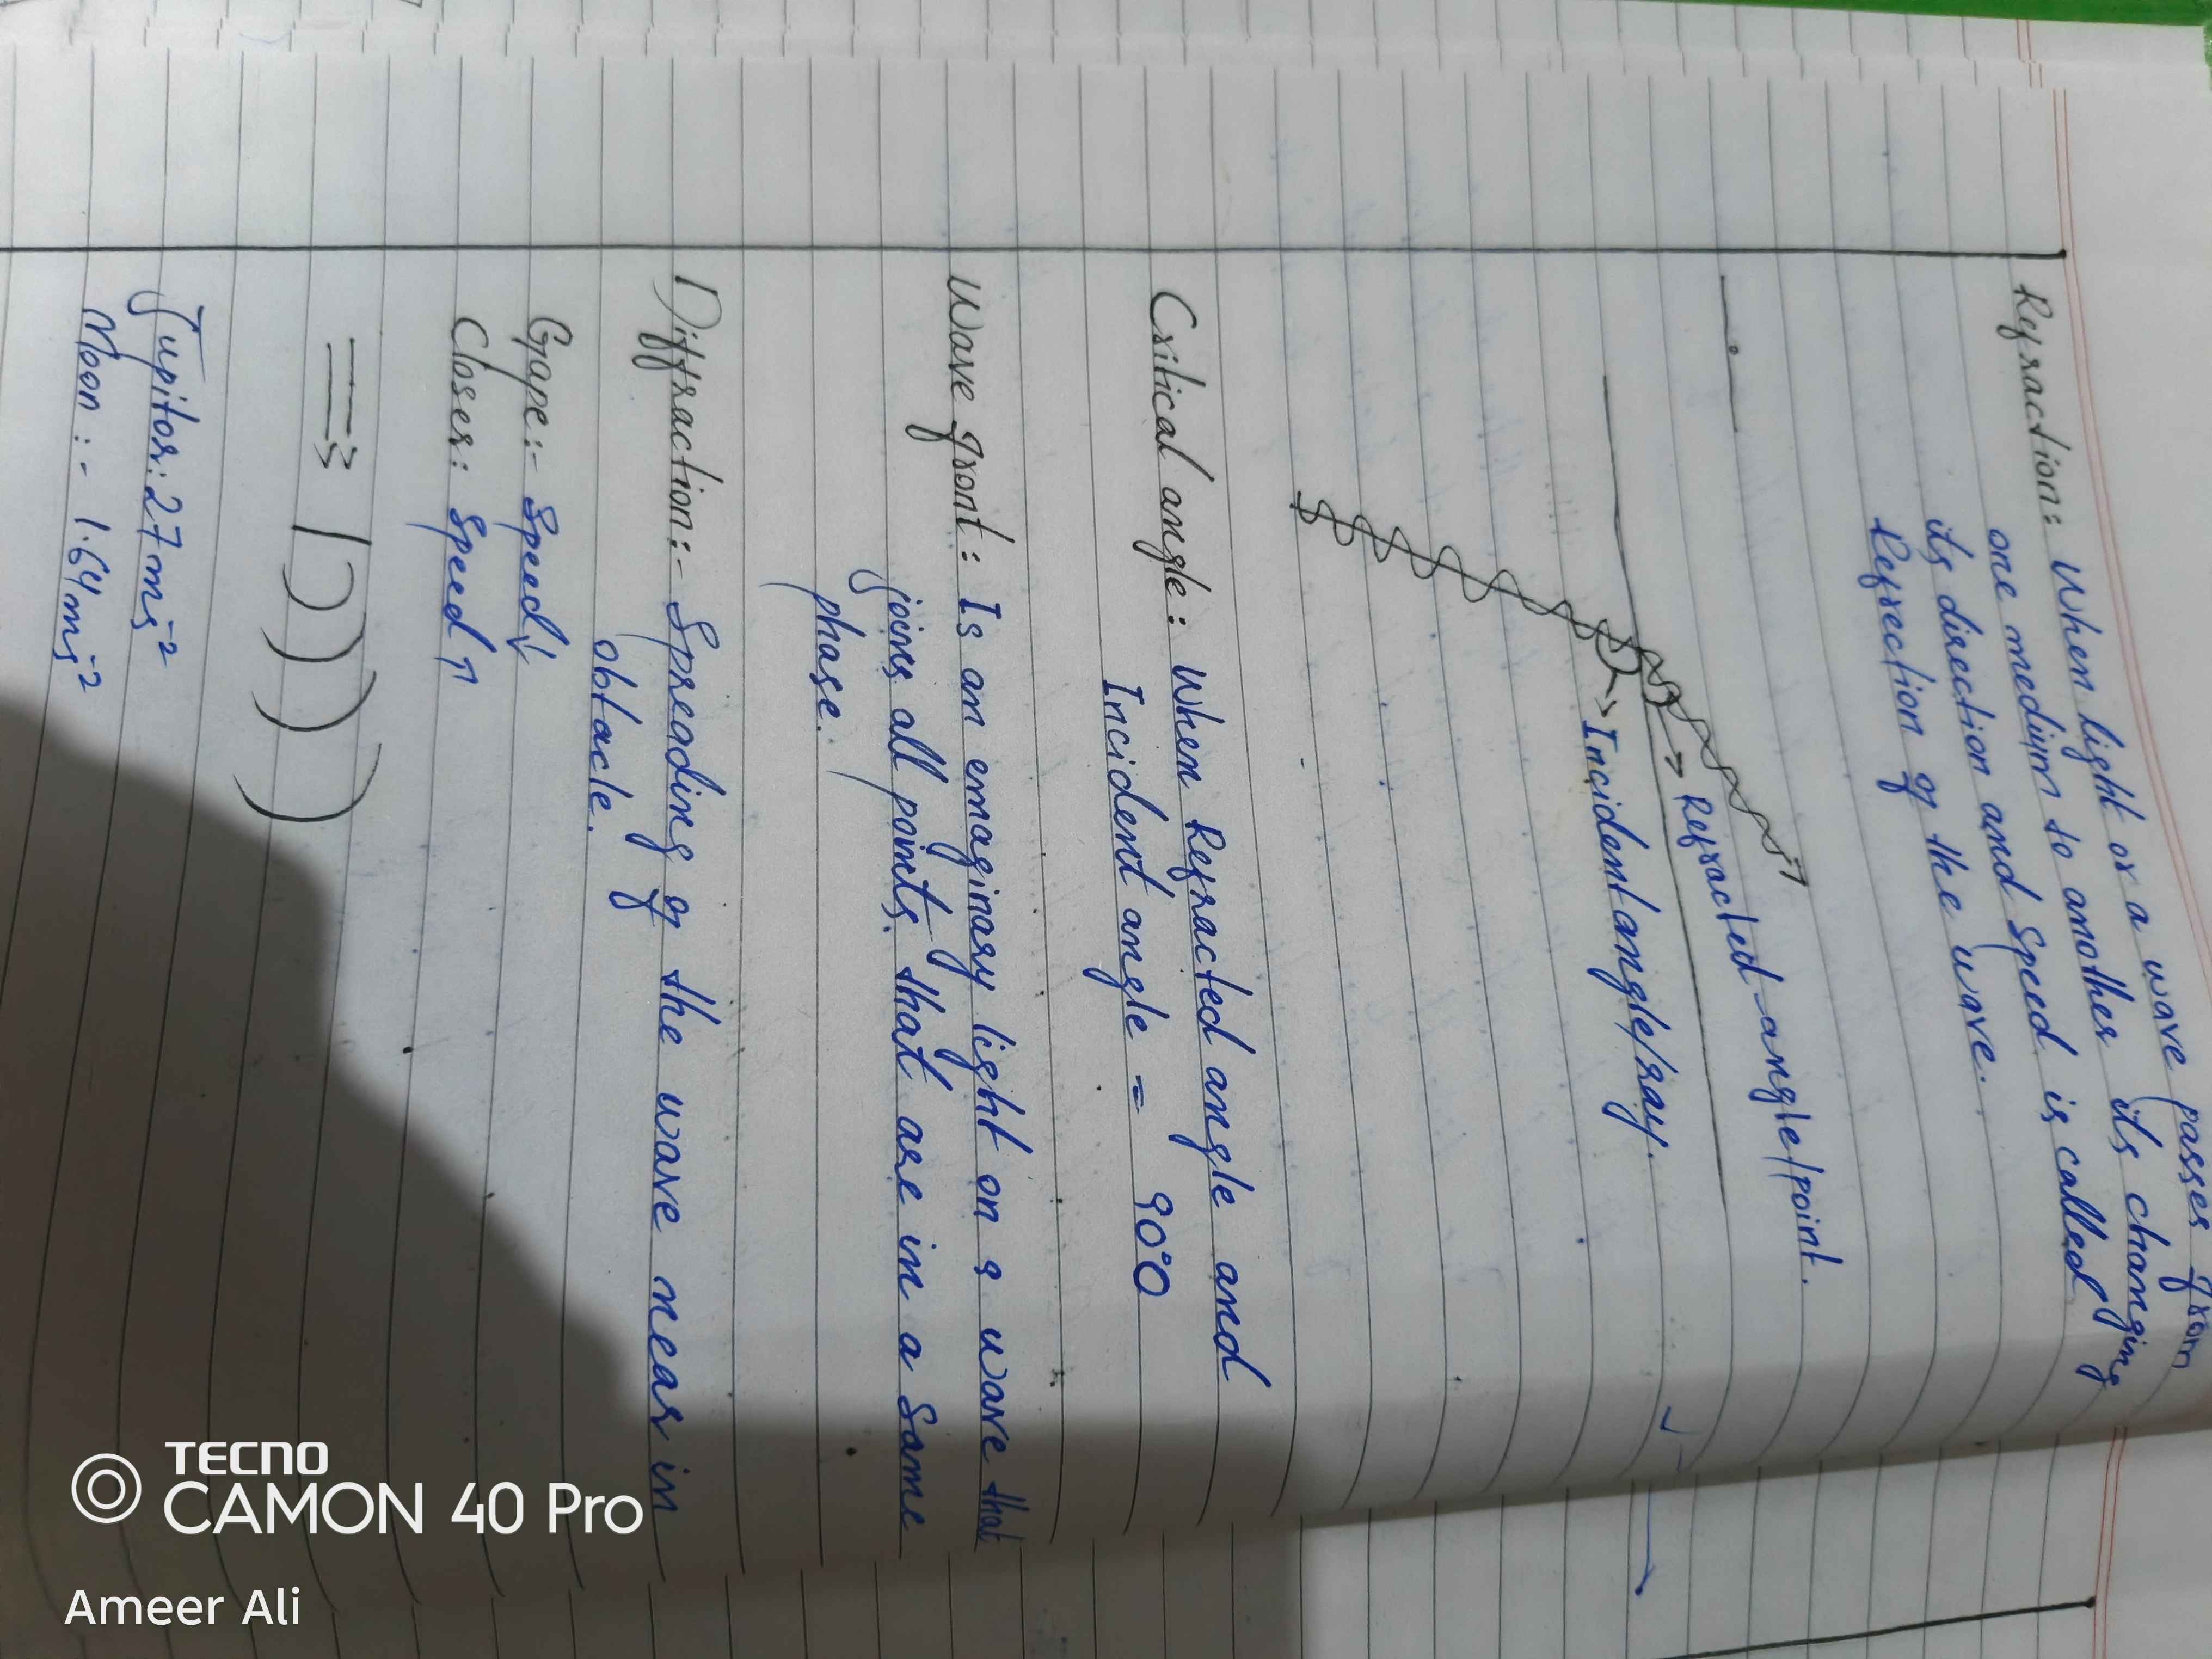 Refraction: When light or a wave passes from
one medium to another its changing
its direction and speed is called
Refrection of the wave.
Refracted-angle/point.
Incident angle/ray.
Critical angle: When Refracted angle and
Incident angle = 90°0
Wave front: Is an emaginary light on a wave that
joins all points. that are in a same
phase.
Diffraction:- Spreading of the wave near in
obtacle.
Gape:- Speed↓
Closer: Speed↑
Jupitor: 27ms⁻²
Moon :- 1.64ms⁻²
TECNO
CAMON 40 Pro
Ameer Ali